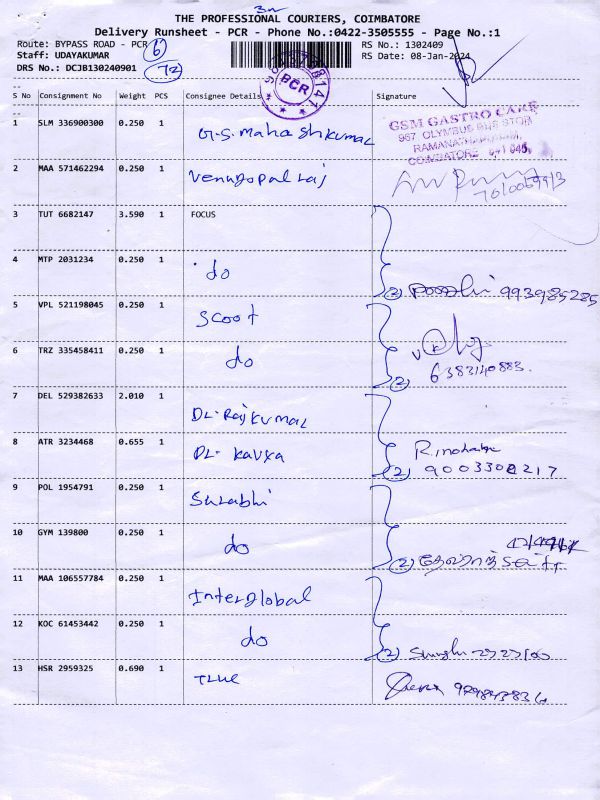 3n
THE PROFESSIONAL COURIERS, COIMBATORE
Delivery Runsheet - PCR - Phone No.:0422-3505555 - Page No.:1
Route: BYPASS ROAD - PCR 6
RS No.: 1302409
Staff: UDAYAKUMAR
RS Date: 08-Jan-2024
DRS No.: DCJB130240901 72
PCR
S No Consignment No Weight PCS Consignee Details Signature
1 SLM 336900300 0.250 1 G.S. Maha shkumar
GSM GASTRO CARE
967 OLYMPUS BUS STOP
RAMANATHAPURAM,
COIMBATORE 641 045
2 MAA 571462294 0.250 1 Venugopal raj
3 TUT 6682147 3.590 1 FOCUS
4 MTP 2031234 0.250 1 do
(2) 993985285
5 VPL 521198045 0.250 1 Scoot
6 TRZ 335458411 0.250 1 do
(2) 6383140883.
7 DEL 529382633 2.010 1 DL. Rajkumar
8 ATR 3234468 0.655 1 DL. Kavya
(2) 9003308217
9 POL 1954791 0.250 1 Surabhi
10 GYM 139800 0.250 1 do
(2)
11 MAA 106557784 0.250 1 Interglobal
12 KOC 61453442 0.250 1 do
(2)
13 HSR 2959325 0.690 1 True